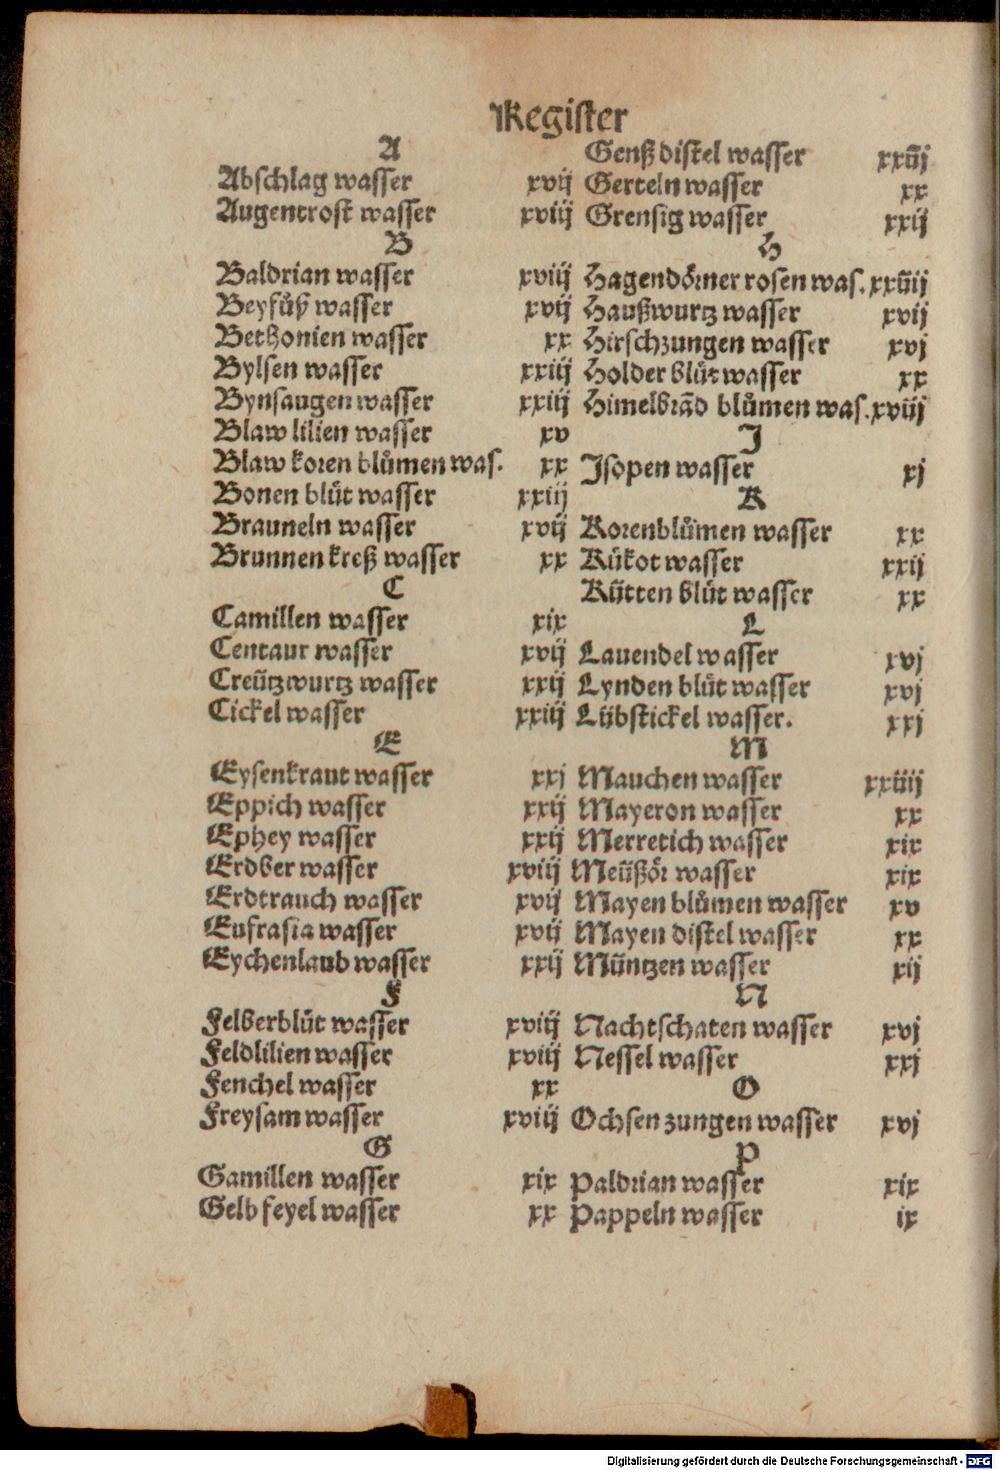 Register
A
Abschlag wasser xvij
Augentrost wasser xviij
B
Baldrian wasser xviij
Beyfůß wasser xvij
Bethonien wasser xx
Bylsen wasser xxiij
Bynsaugen wasser xxiij
Blaw lilien wasser xv
Blaw koren blůmen was. xx
Bonen blůt wasser xxiij
Brauneln wasser xvij
Brunnen kreß wasser xx
C
Camillen wasser xix
Centaur wasser xvij
Creützwurtz wasser xxij
Cickel wasser xxiij
E
Eysenkraut wasser xxj
Eppich wasser xxij
Ephey wasser xxij
Erdber wasser xviij
Erdtrauch wasser xvij
Eufrasia wasser xvij
Eychenlaub wasser xxij
F
Felberblůt wasser xviij
Feldlilien wasser xviij
Fenchel wasser xx
Freysam wasser xviij
G
Gamillen wasser xix
Gelb feyel wasser xx
Genß distel wasser xxiij
Gerteln wasser xx
Grensig wasser xxij
H
Hagendörner rosen was. xxiiij
Haußwurtz wasser xvij
Hirschzungen wasser xvj
Holder blůt wasser xx
Himelbrād blůmen was. xviij
J
Jsopen wasser xj
K
Korenblůmen wasser xx
Kůkot wasser xxij
Kütten blůt wasser xx
L
Lauendel wasser xvj
Lynden blůt wasser xvj
Lübstickel wasser. xxj
M
Mauchen wasser xxiiij
Mayeron wasser xx
Merretich wasser xix
Meüßör wasser xix
Mayen blůmen wasser xv
Mayen distel wasser xx
Müntzen wasser xij
N
Nachtschaten wasser xvj
Nessel wasser xxj
O
Ochsen zungen wasser xvj
P
Paldrian wasser xix
Pappeln wasser ix
Digitalisierung gefördert durch die Deutsche Forschungsgemeinschaft - DFG